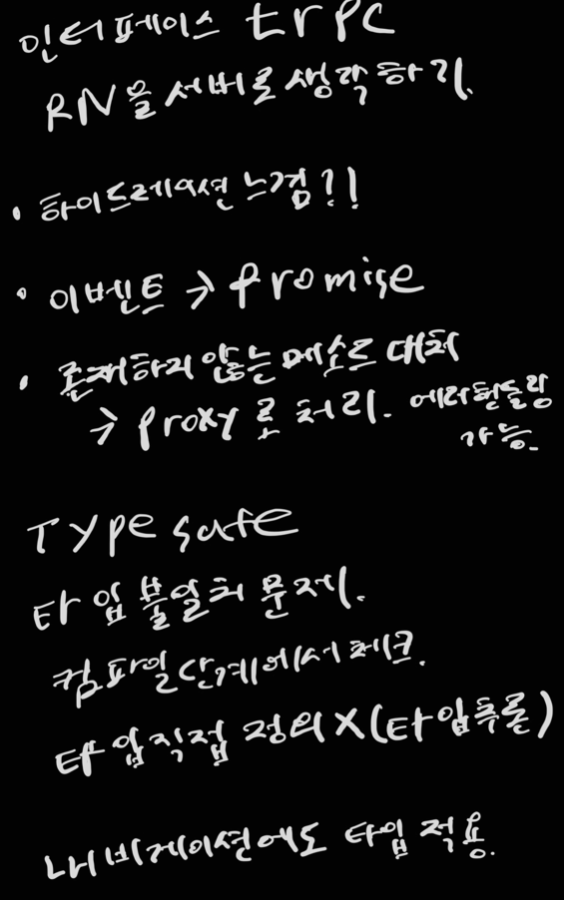 인터페이스 trpc
RN을 서버로 생각하기.
• 하이드레이션 느낌?!
• 이벤트 → promise
• 존재하지 않는 메소드 대처
→ proxy로 처리. 에러핸들링
가능.
Type safe
타입 불일치 문제.
컴파일 단계에서 체크.
타입 직접 정의 X (타입추론)
내비게이션에도 타입 적용.